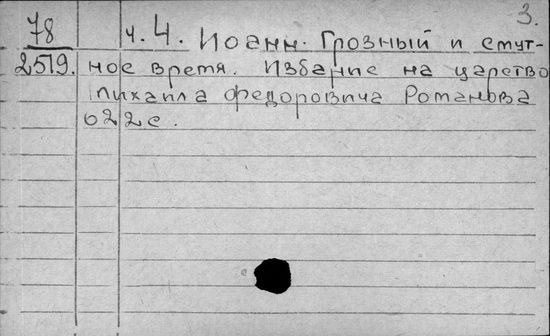 3.
78 ч. 4. Иоанн. Грозный и смут-
2519. ное время. Избание на царство
Михаила Федоровича Романова
622с.